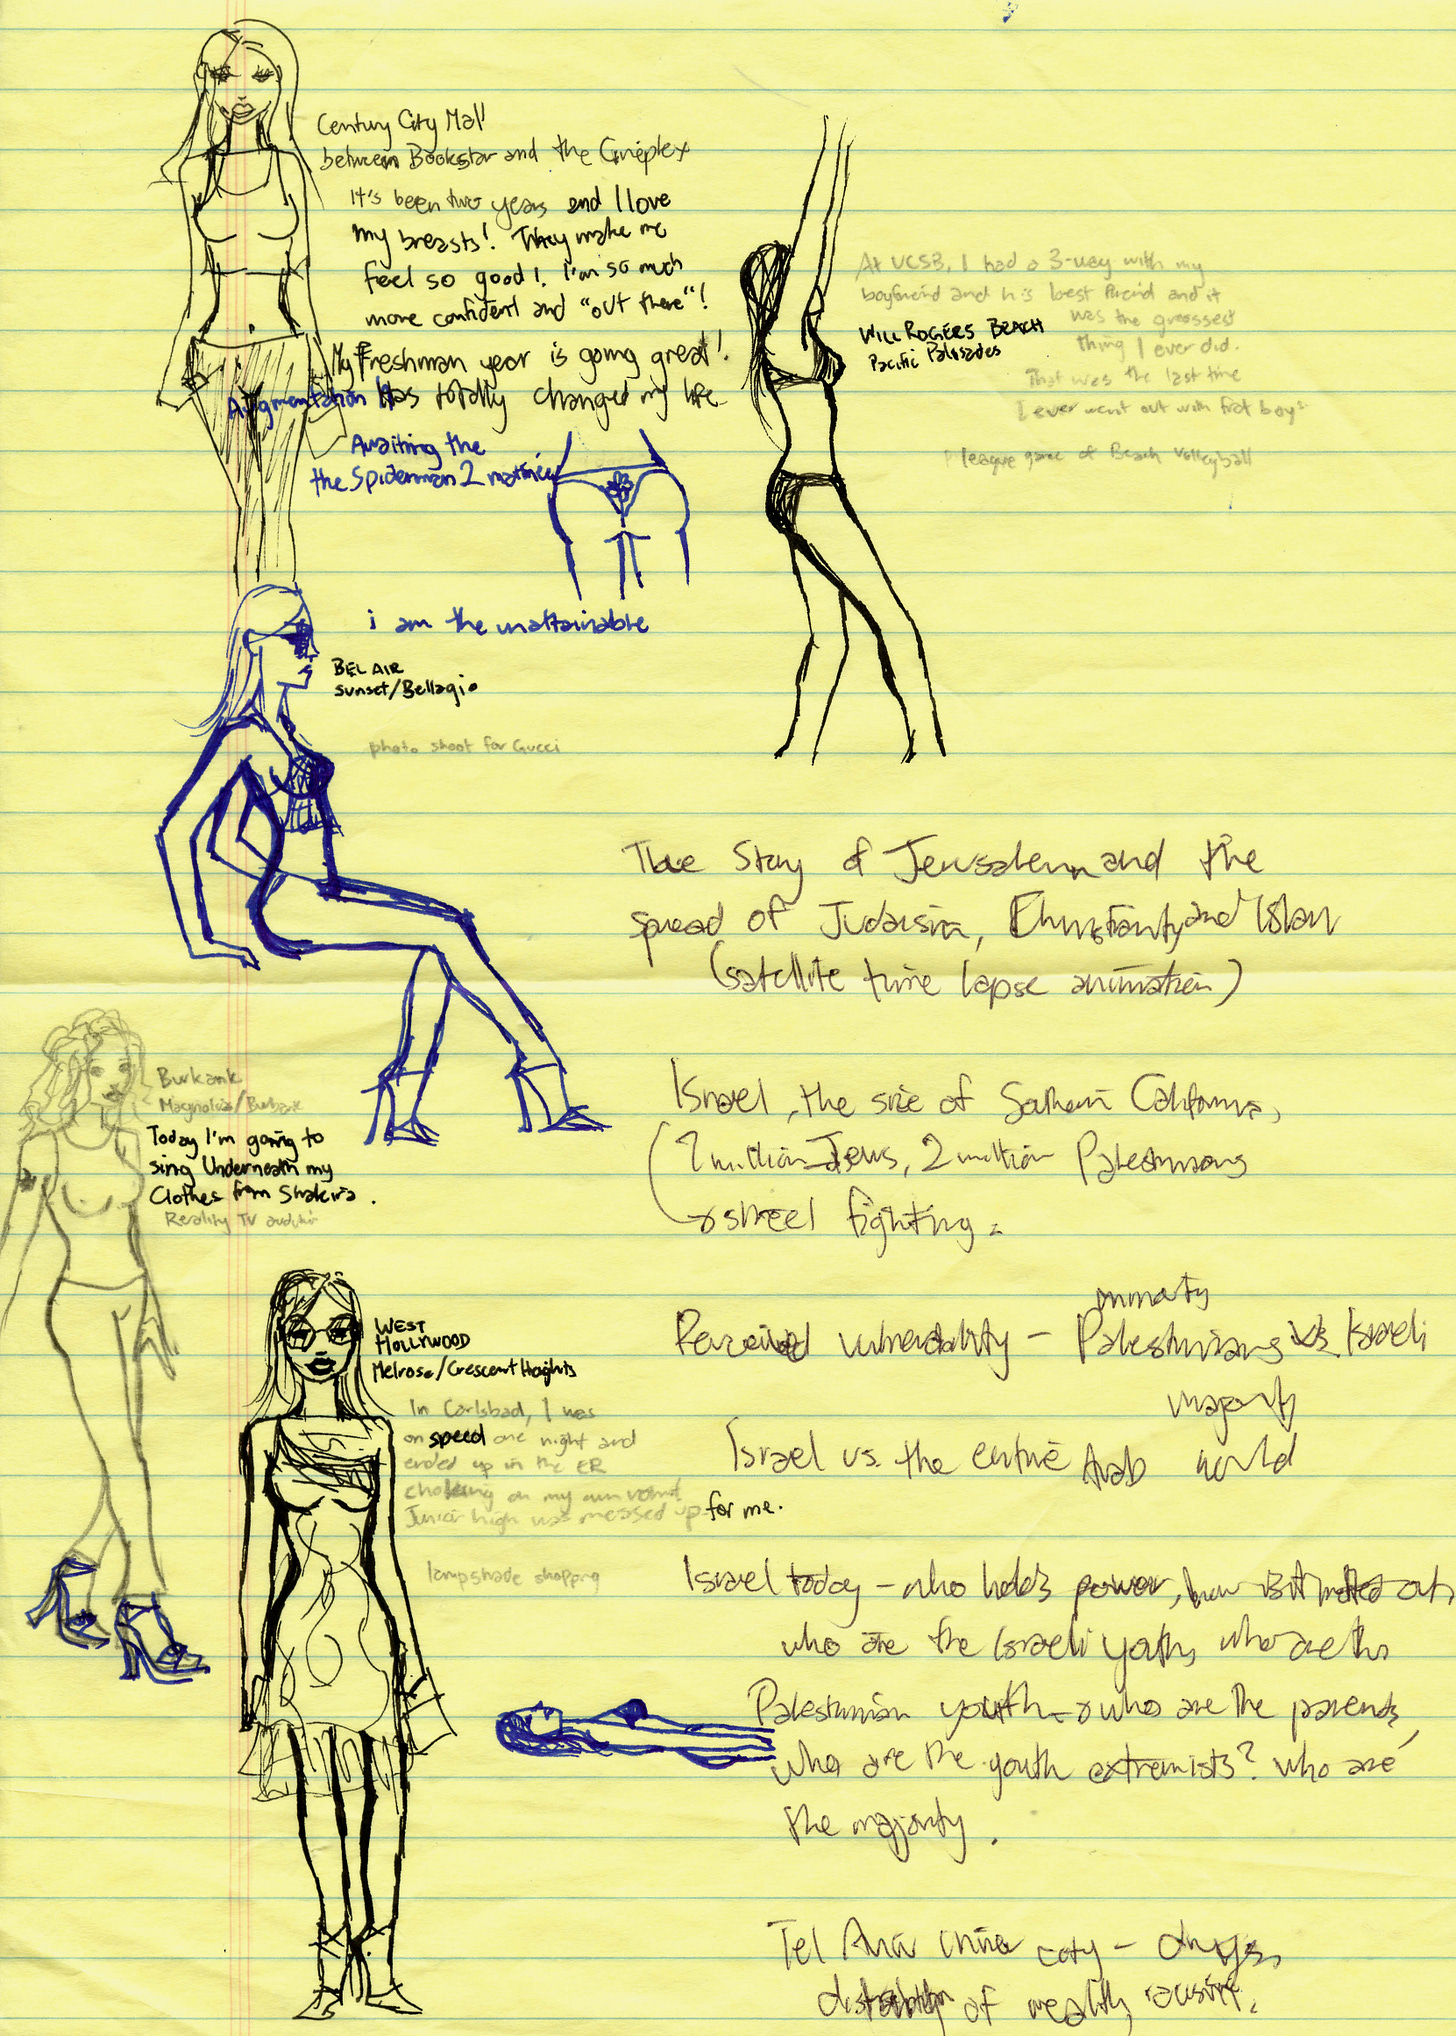 Century City Mall
between Bookstar and the Cineplex
It's been two years and I love
my breasts! They make me
feel so good! I'm so much
more confident and "out there"!
My Freshman year is going great!
Augmentation Has totally changed my life
Awaiting the
the Spiderman 2 matinée
At UCSB, I had a 3-way with my
boyfriend and his best friend and it
was the grossest
thing I ever did.
That was the last time
I ever went out with frat boys.
league game of Beach Volleyball
WILL ROGERS BEACH
Pacific Palisades
i am the unattainable
BEL AIR
sunset/Bellagio
photo shoot for Gucci
The Story of Jerusalem and the
spread of Judaism, Christianity and Islam
(satellite time lapse animation)
Israel, the size of Southern California,
7 million Jews, 2 million Palestinians
street fighting.
Perceived vulnerability – Palestinians minority vs. Israeli
majority
Israel vs. the entire Arab world
Israel today – who holds power, how is it meted out,
who are the Israeli youth, who are the
Palestinian youth – who are the parents,
who are the youth extremists? who are
the majority.
Tel Aviv inner city – drugs,
distribution of wealth, racism.
Burbank
Magnolia/Burbank
Today I'm going to
sing Underneath my
Clothes from Shakira.
Reality TV audition
WEST
HOLLYWOOD
Melrose/Crescent Heights
In Carlsbad, I was
on speed one night and
ended up in the ER
choking on my own vomit.
Junior high was messed up for me.
lampshade shopping